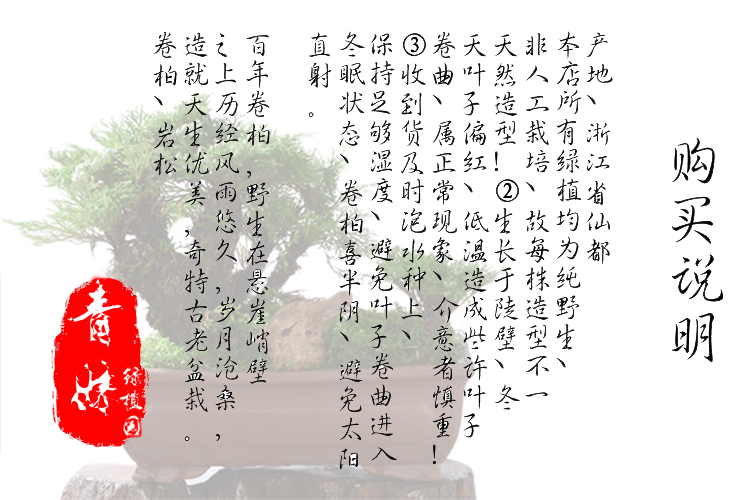 购买说明
产地、浙江省仙都
本店所有绿植均为纯野生、
非人工栽培、故每株造型不一
天然造型！②生长于陡壁、冬
天叶子偏红、低温造成些许叶子
卷曲、属正常现象、介意者慎重！
③收到货及时泡水种上、
保持足够湿度、避免叶子卷曲进入
冬眠状态、卷柏喜半阴、避免太阳
直射。
百年卷柏，野生在悬崖峭壁
之上历经风雨悠久，岁月沧桑，
造就天生优美，奇特古老盆栽。
卷柏、岩松
绿植园